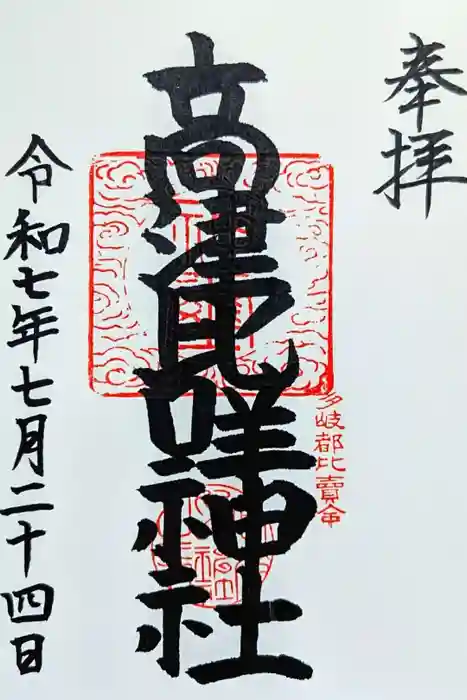 奉拝
高津比咩神社
多岐都比賣命
令和七年七月二十四日